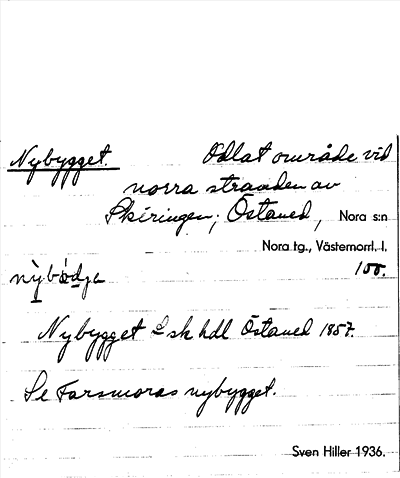 Nybygget. Odlat område vid
norra stranden av
Skéringen; Östaned, Nora s:n
Nora tg., Västernorrl. l.
100.
Nybygget Lsk hdl Östaned 1857.
Se Farsmoras nybygget.
Sven Hiller 1936.